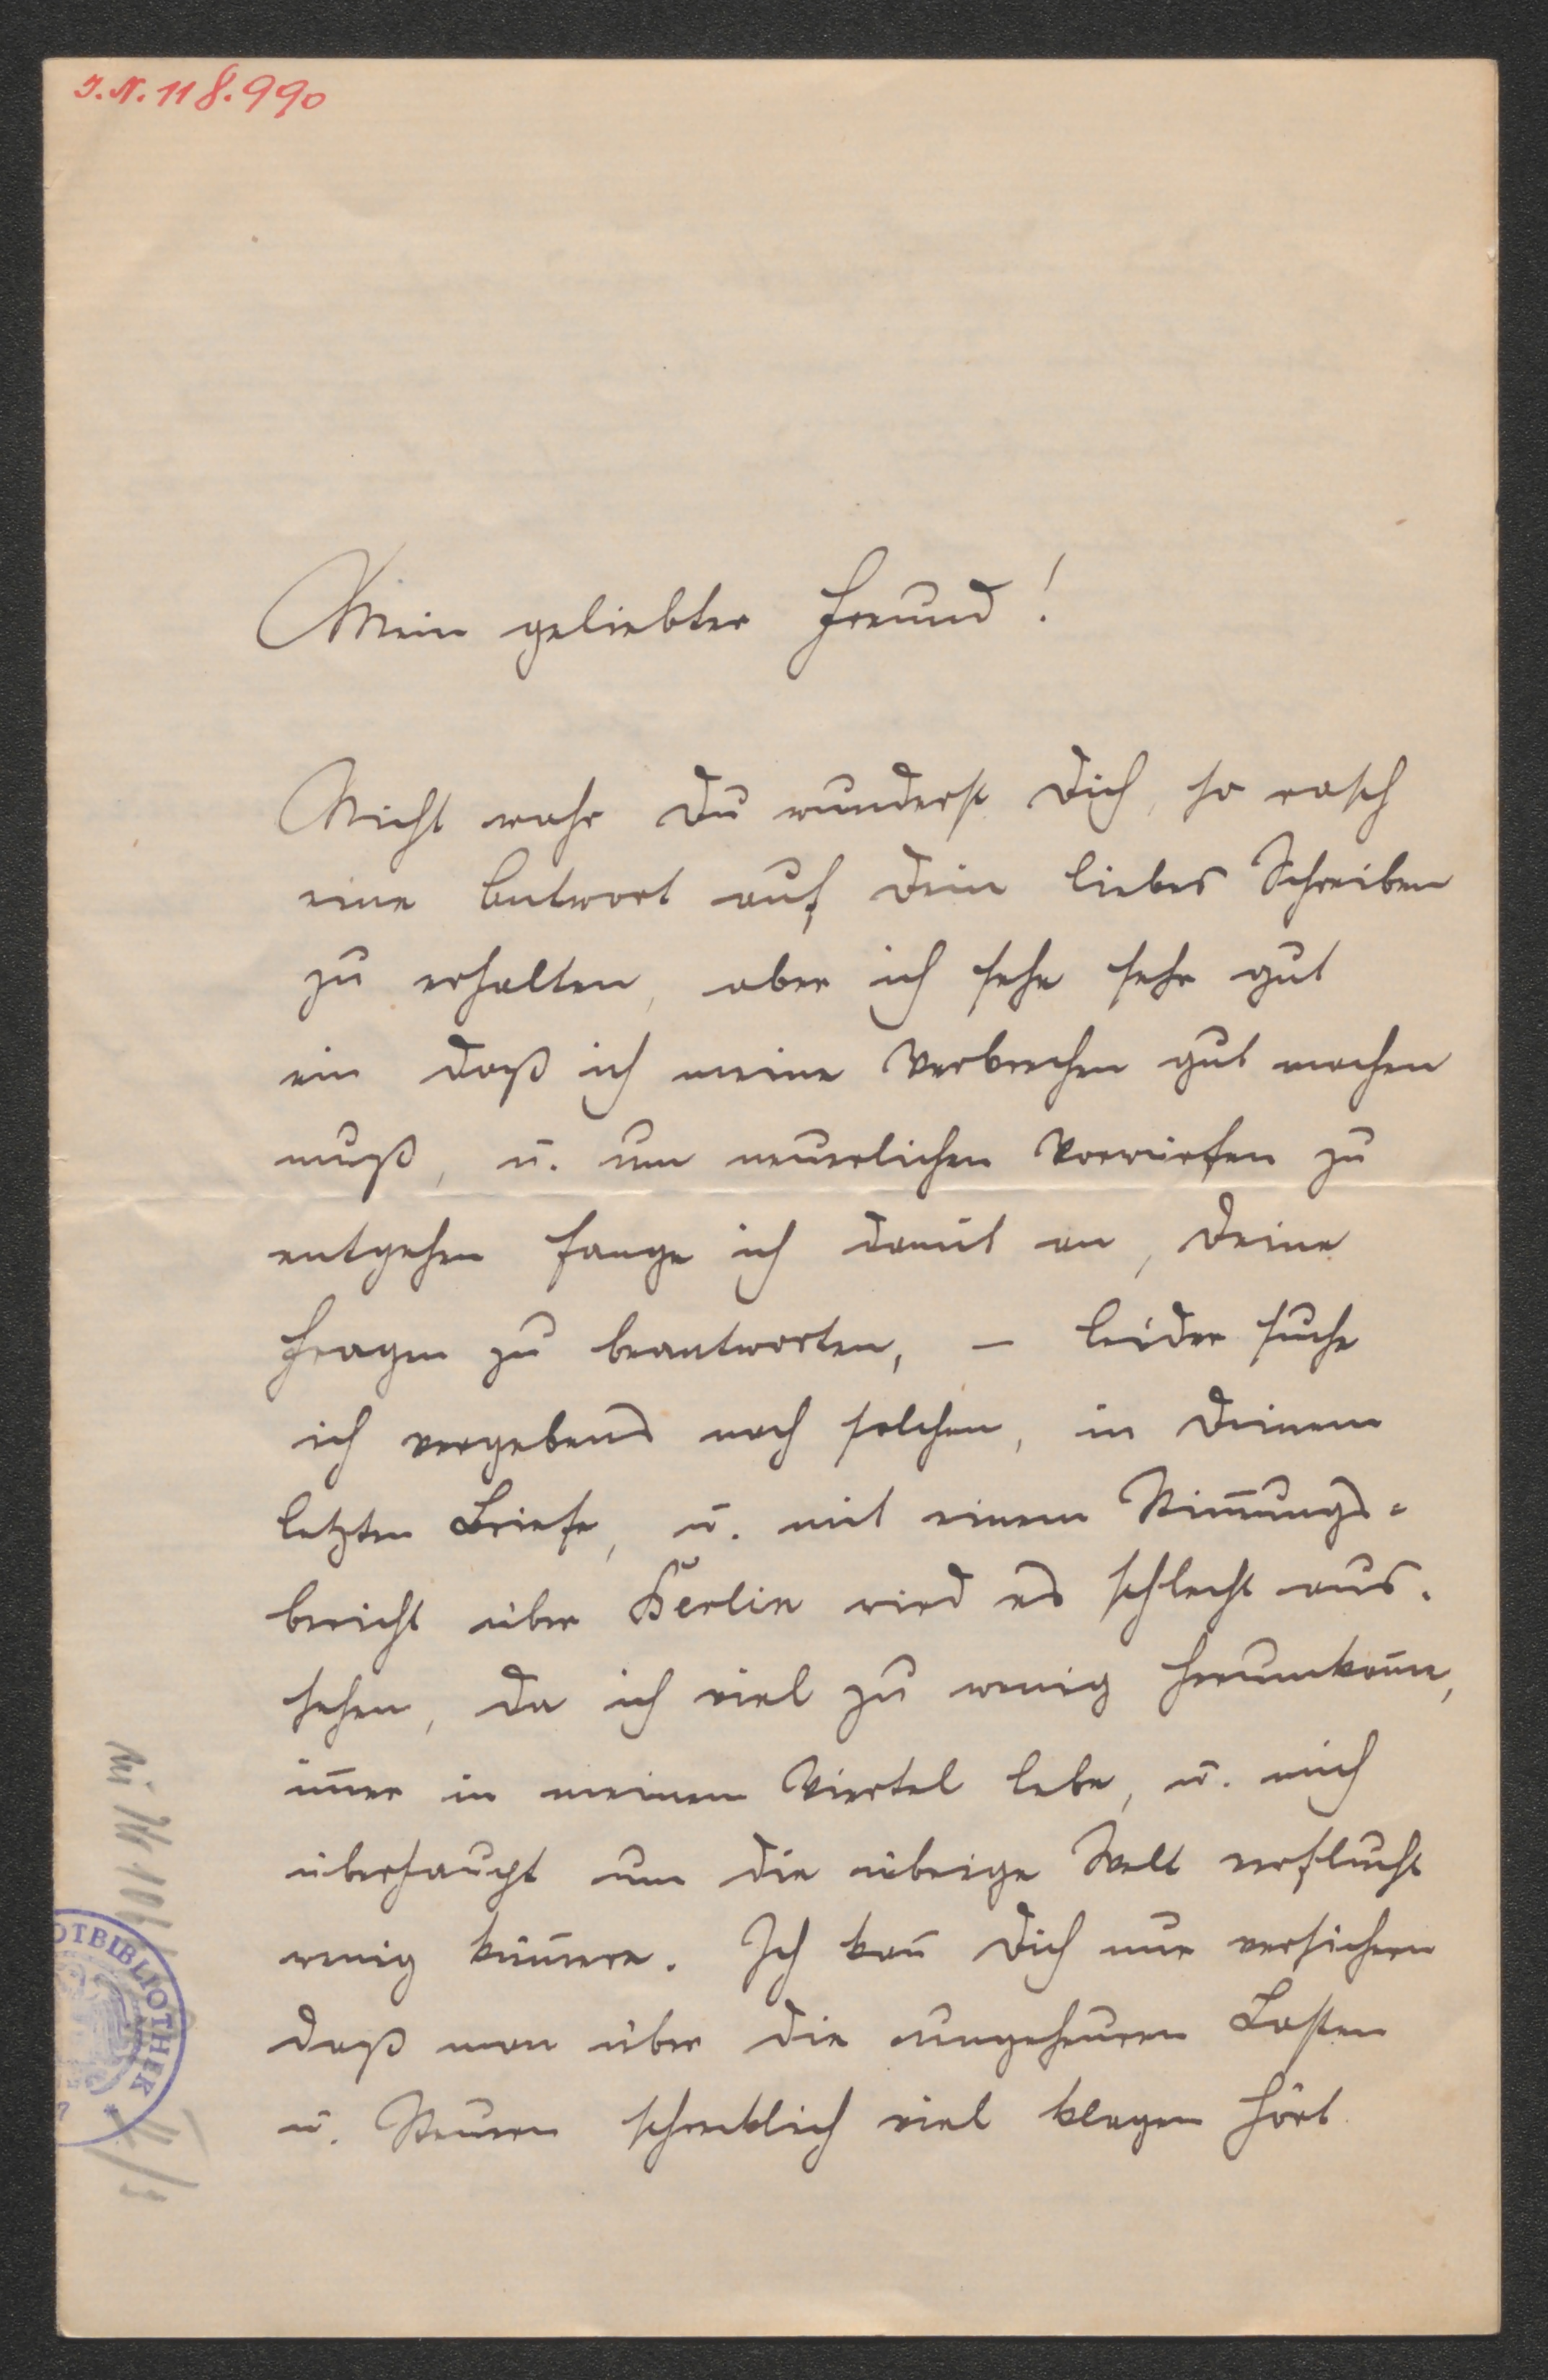 I.N. 118.990
Mein geliebter Freund!
Nicht wahr Du wunderst Dich, so rasch
eine Antwort auf Dein liebes Schreiben
zu erhalten, aber ich sehe sehr gut
ein daß ich meine Verbrechen gut machen
muß, u. um neuerlichen Vorwürfen zu
entgehen fange ich damit an, Deine
Fragen zu beantworten, – leider suche
ich vergebens nach solchen, in Deinem
letzten Briefe, u. mit einem Stim̄ungs-
bericht über Berlin wird es schlecht aus-
sehen, da ich viel zu wenig herumkom̄e,
im̄er in meinem Viertel lebe, u. mich
überhaupt um die übrige Welt verflucht
wenig küm̄ere. Ich kan̄ Dich nur versichern
daß man über die ungeheuren Lasten
u. Steuern schrecklich viel klagen hört
OTBIBLIOTHEK